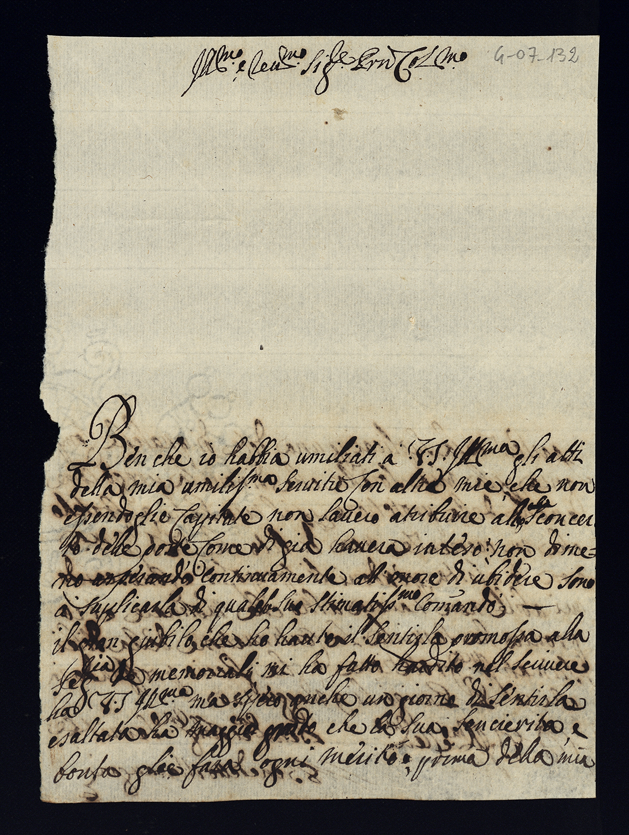 Ill.mo e Reu.mo Sig.e Prn Col.mo
G-07-132
Ben che io habbia umiliati a V.S Ill.ma gli atti
della mia umiliss.ma Seruitù Con altre mie che non
essendoglie Capitate non saueio atribuire all
te delle poste Come di già hauera inteso: non dime=
no Continuamente all onore di ubidire sono
a Suplicarla di qualche Suo Stimatiss.mo Comando —
il gran giubilo che ho hauto il Sentirla promossa alla
memoriali mi ha fatto hardito nel Scriuere
ha V.S Ill.ma ma spero anche un giorno di Sentirla
esaltata ha grado che la Sua sencierità, e
bontà glie farà ogni merito: prima della mia